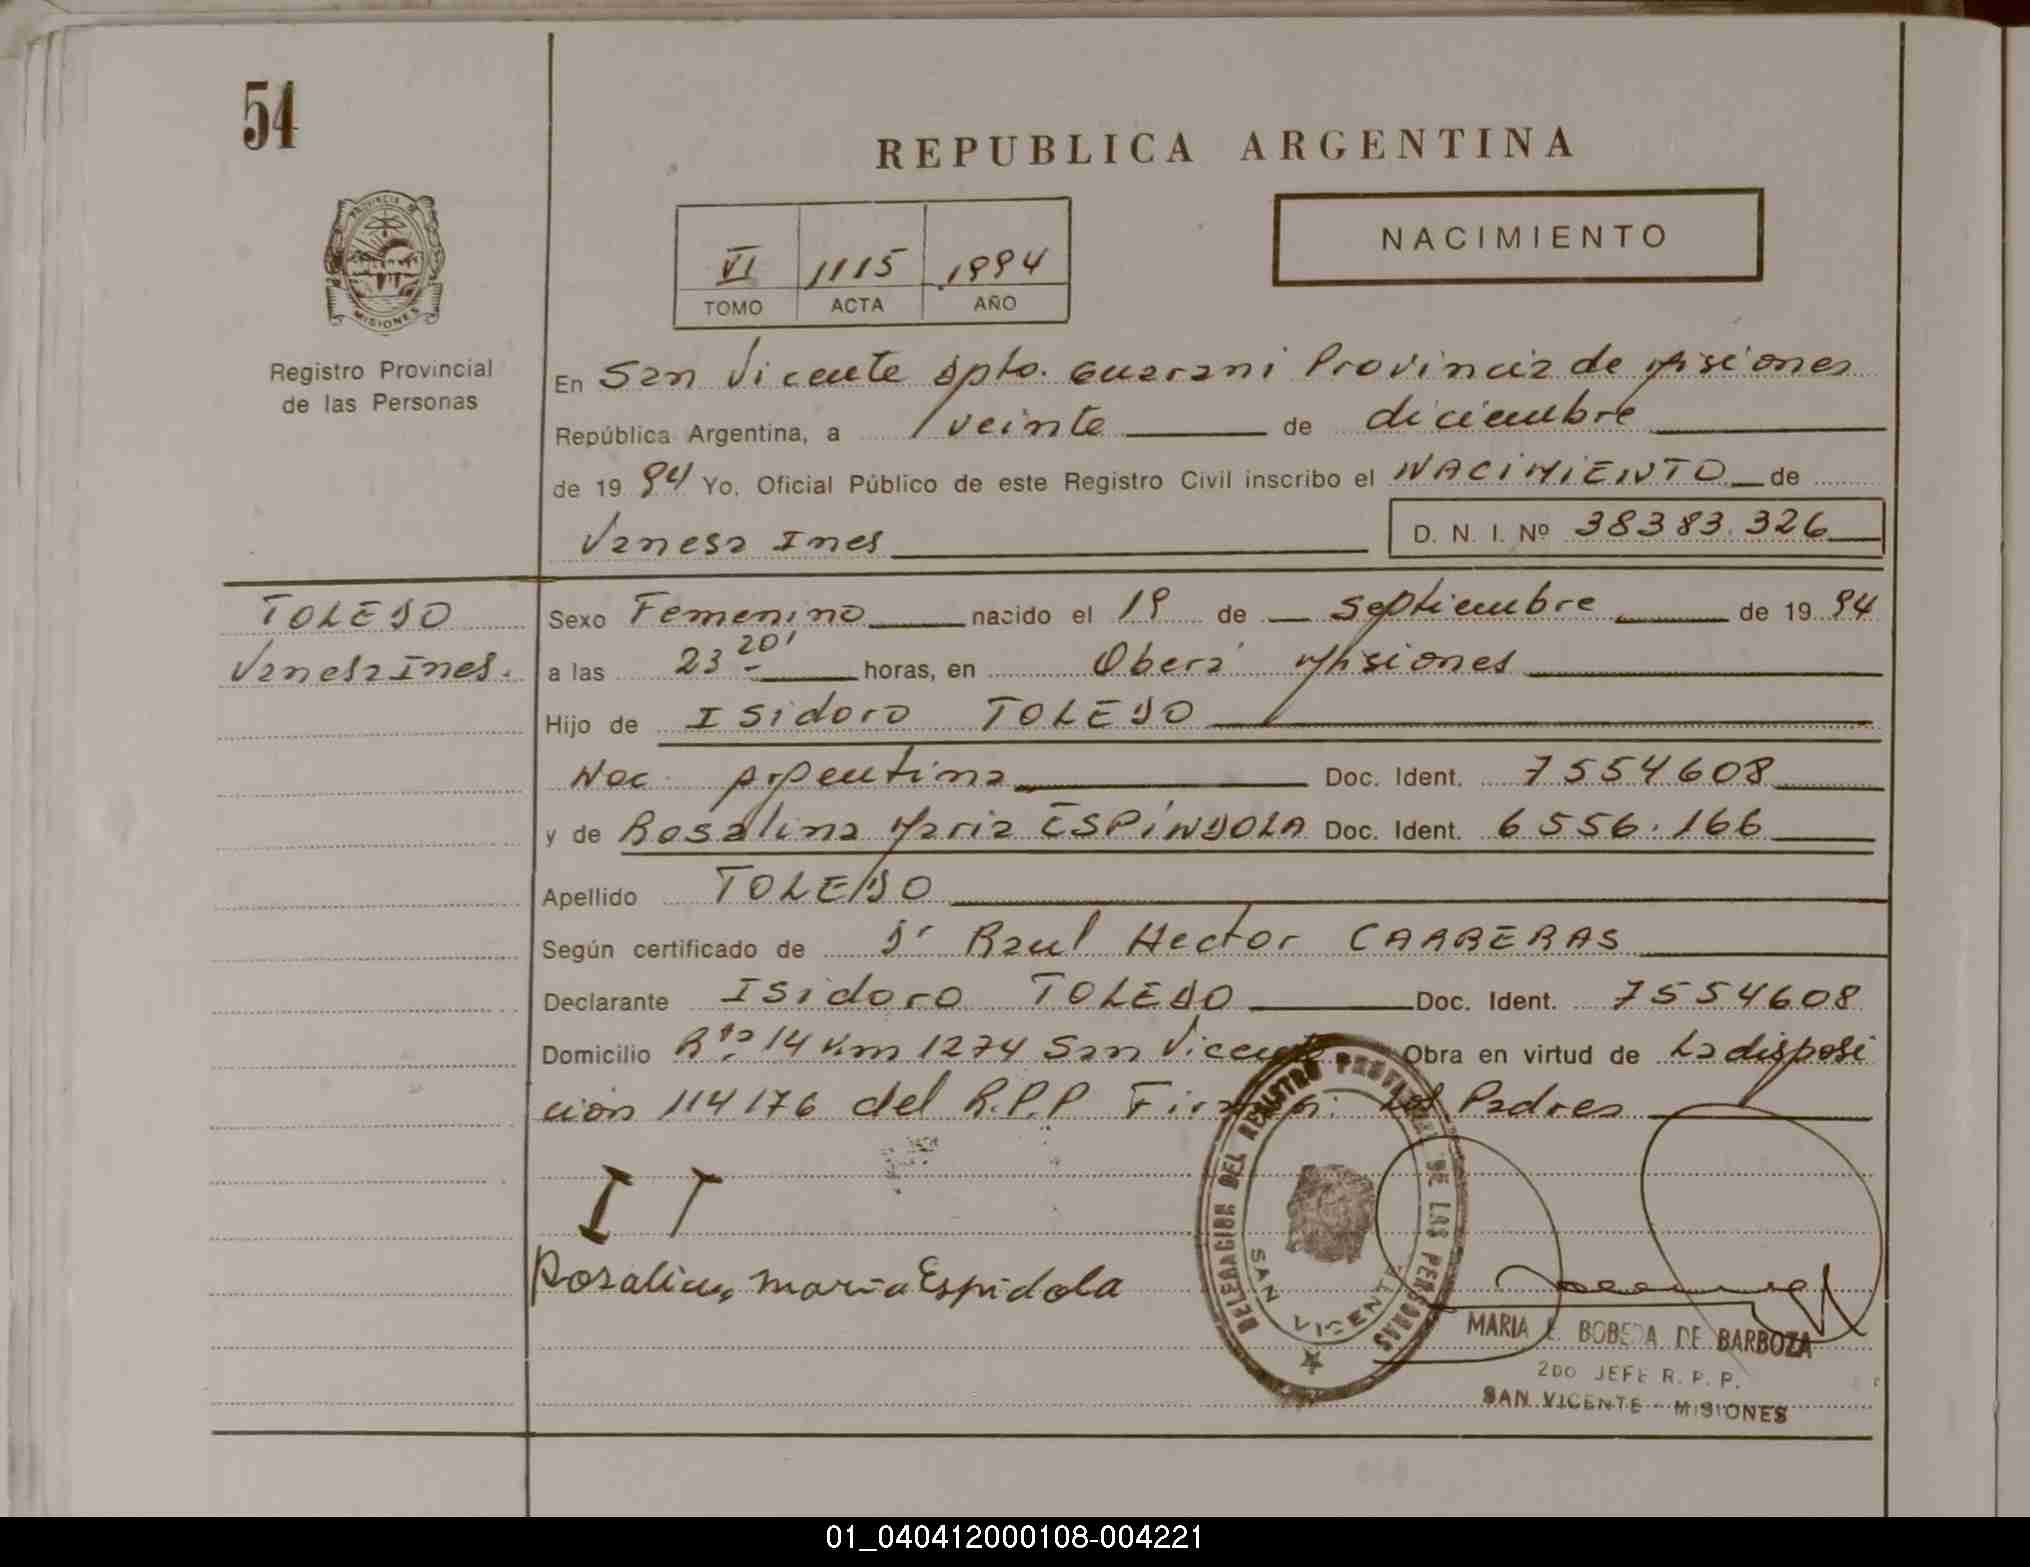 54
REPUBLICA ARGENTINA
NACIMIENTO
VI 1115 1994
TOMO ACTA AÑO
PROVINCIA DE
MISIONES
Registro Provincial
de las Personas
En San Vicente Dpto. Guarani Provincia de Misiones
República Argentina, a veinte de diciembre
de 19 94 Yo, Oficial Público de este Registro Civil inscribo el NACIMIENTO de
Vanesa Ines D. N. I. Nº 38383.326
TOLEDO
Vanesa Ines.
Sexo Femenino nacido el 19 de septiembre de 19 94
a las 23 20' horas, en Oberá Misiones
Hijo de Isidoro TOLEDO
Nac. Argentina Doc. Ident. 7554608
y de Rosalina Maria ESPÍNDOLA Doc. Ident. 6556.166
Apellido TOLEDO
Según certificado de Dr Raul Hector CARRERAS
Declarante Isidoro TOLEDO Doc. Ident. 7554608
Domicilio Rta. 14 Km 1274 San Vicente Obra en virtud de La disposi
ción 114176 del R.P.P Firman: Los Padres
I T
Rosalina maria Espidola
DELEGACION DEL REGISTRO PROVINCIAL DE LAS PERSONAS
SAN VICENTE
MARIA E. BOBEDA DE BARBOZA
2DO JEFE R. P. P.
SAN VICENTE - MISIONES
01_040412000108-004221